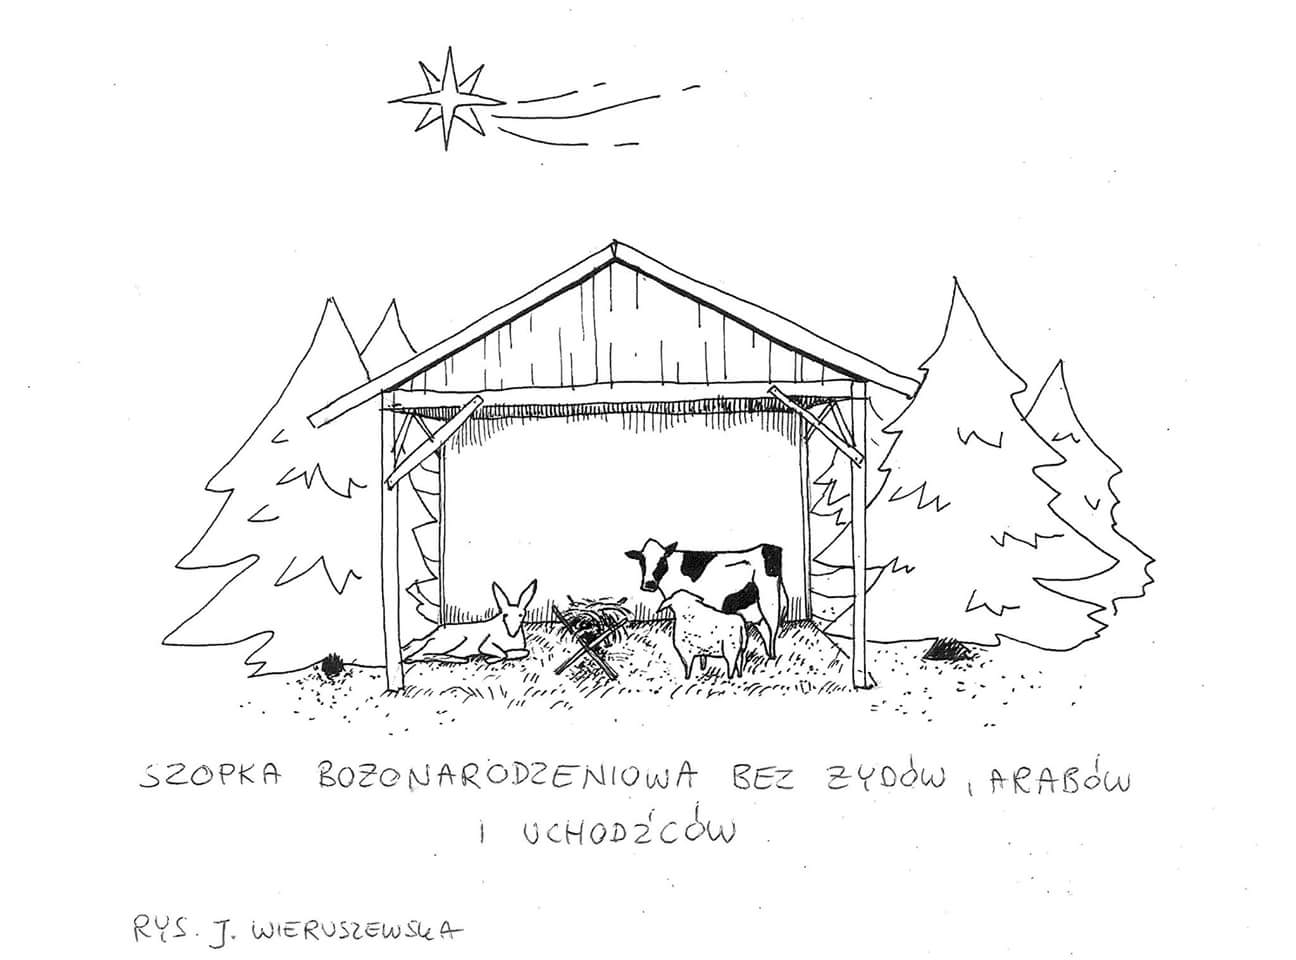 SZOPKA BOŻONARODZENIOWA BEZ ŻYDÓW, ARABÓW
I UCHODŹCÓW
RYS. J. WIERUSZEWSKA